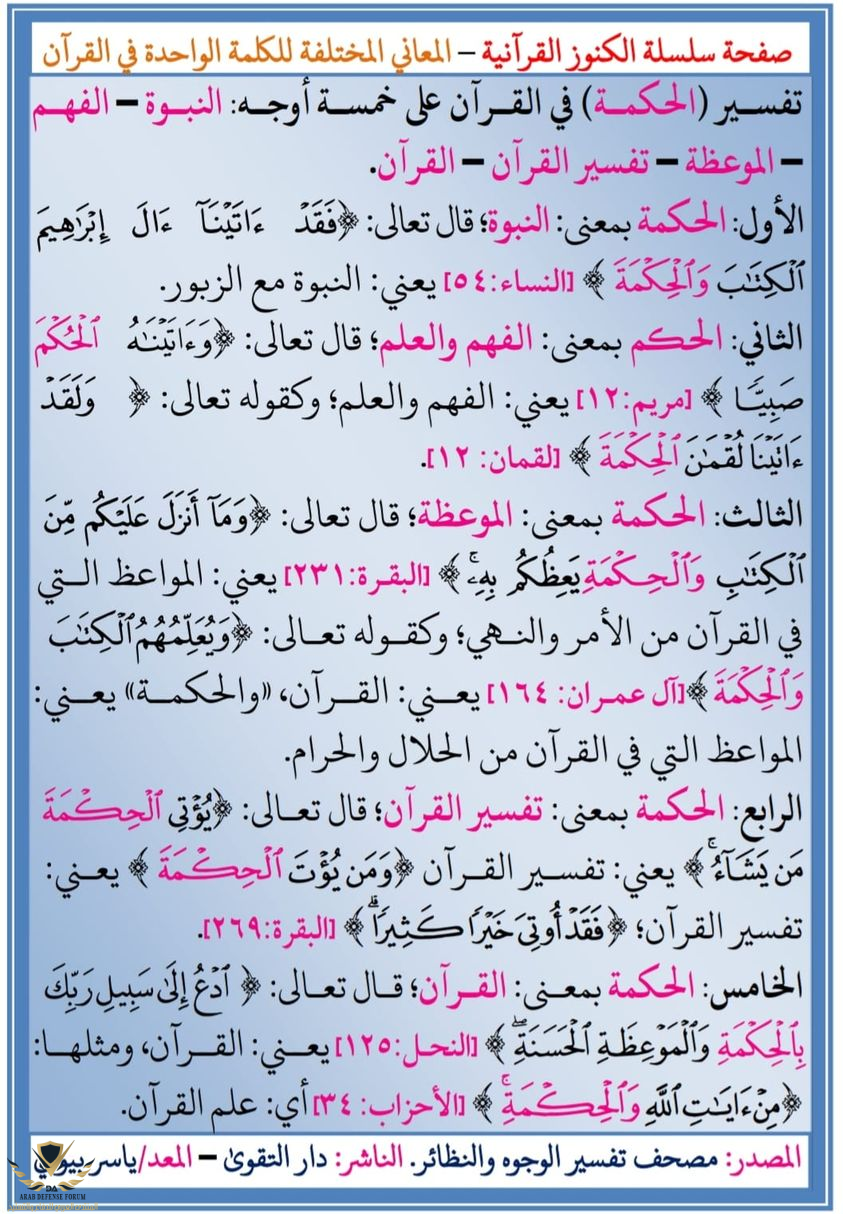 صفحة سلسلة الكنوز القرآنية – المعاني المختلفة للكلمة الواحدة في القرآن
تفسير (الحكمة) في القرآن على خمسة أوجه: النبوة – الفهم
– الموعظة – تفسير القرآن – القرآن.
الأول: الحكمة بمعنى: النبوة؛ قال تعالى: ﴿فَقَدْ ءَاتَيْنَآ ءَالَ إِبْرَٰهِيمَ
ٱلْكِتَٰبَ وَٱلْحِكْمَةَ ﴾ [النساء:٥٤] يعني: النبوة مع الزبور.
الثاني: الحكم بمعنى: الفهم والعلم؛ قال تعالى: ﴿وَءَاتَيْنَٰهُ ٱلْحُكْمَ
صَبِيًّا ﴾ [مريم:١٢] يعني: الفهم والعلم؛ وكقوله تعالى: ﴿ وَلَقَدْ
ءَاتَيْنَا لُقْمَٰنَ ٱلْحِكْمَةَ ﴾ [لقمان: ١٢].
الثالث: الحكمة بمعنى: الموعظة؛ قال تعالى: ﴿وَمَآ أَنزَلَ عَلَيْكُم مِّنَ
ٱلْكِتَٰبِ وَٱلْحِكْمَةِ يَعِظُكُم بِهِۦۚ ﴾ [البقرة:٢٣١] يعني: المواعظ التي
في القرآن من الأمر والنهي؛ وكقوله تعالى: ﴿وَيُعَلِّمُهُمُ ٱلْكِتَٰبَ
وَٱلْحِكْمَةَ ﴾[آل عمران: ١٦٤] يعني: القرآن، «والحكمة» يعني:
المواعظ التي في القرآن من الحلال والحرام.
الرابع: الحكمة بمعنى: تفسير القرآن؛ قال تعالى: ﴿يُؤْتِى ٱلْحِكْمَةَ
مَن يَشَآءُۚ ﴾ يعني: تفسير القرآن ﴿وَمَن يُؤْتَ ٱلْحِكْمَةَ ﴾ يعني:
تفسير القرآن؛ ﴿فَقَدْ أُوتِىَ خَيْرًا كَثِيرًاۗ ﴾ [البقرة:٢٦٩].
الخامس: الحكمة بمعنى: القرآن؛ قال تعالى: ﴿ ٱدْعُ إِلَىٰ سَبِيلِ رَبِّكَ
بِٱلْحِكْمَةِ وَٱلْمَوْعِظَةِ ٱلْحَسَنَةِۖ ﴾ [النحل:١٢٥] يعني: القرآن، ومثلها:
﴿مِنْ ءَايَٰتِ ٱللَّهِ وَٱلْحِكْمَةِۚ ﴾ [الأحزاب: ٣٤] أي: علم القرآن.
المصدر: مصحف تفسير الوجوه والنظائر. الناشر: دار التقوىٰ – المعد/ياسر بيومي
ARAB DEFENSE FORUM